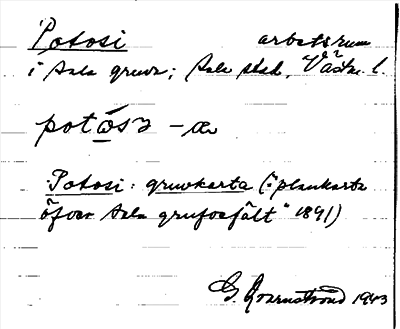 Potosi arbetsrum
i Sala gruva; Sala stad, Västm. l.
potåsɜ -æ
Potosi: gruvkarta ("plankarta
öfver Sala grufvefält" 1891)
G. Kvarnström 1943